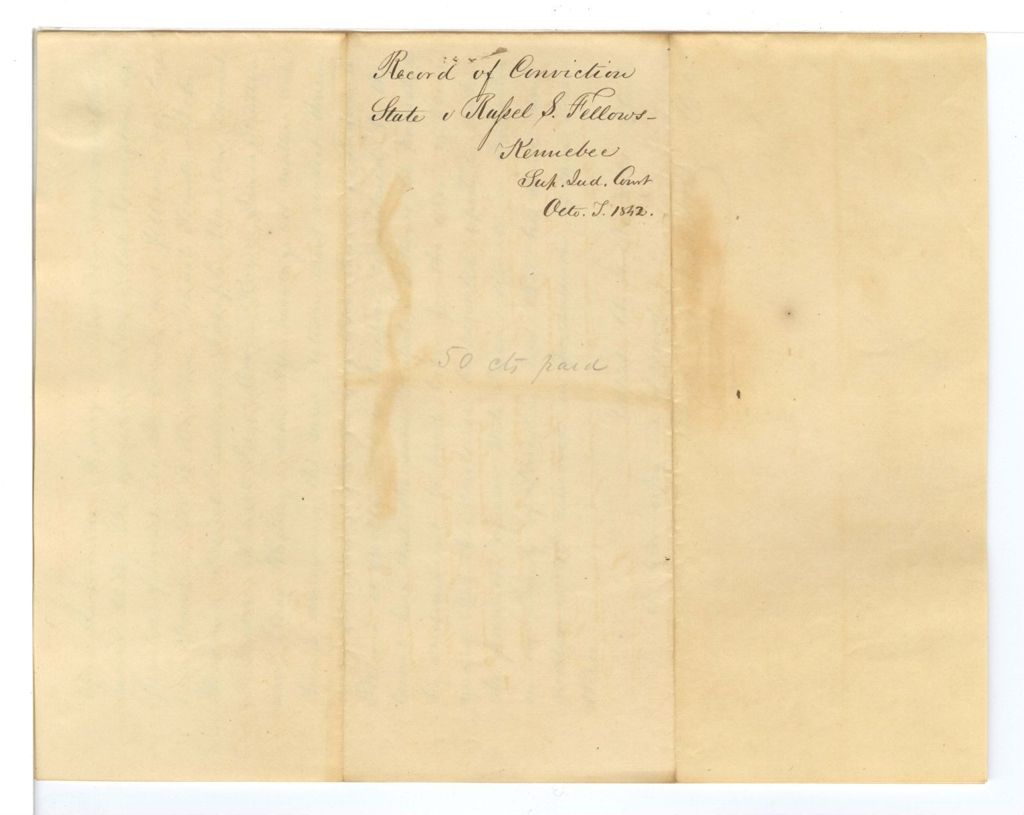 Record of Conviction
State v Russel S. Fellows-
Kennebec
Sup. Jud. Court
Octo. T. 1842.
50 cts paid